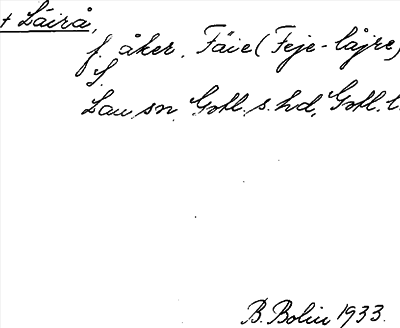 + Låirå,
f. åker. Fäie (Feje-låjre)
S.
Lau sn. Gotl. s. hd, Gotl. l.
B. Bolin 1933.